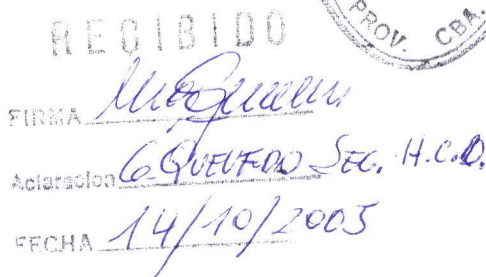 RECIBIDO
PROV. CBA.
FIRMA
Aclaracion G. QUEVEDO SEC. H.C.D.
FECHA 14/10/2005